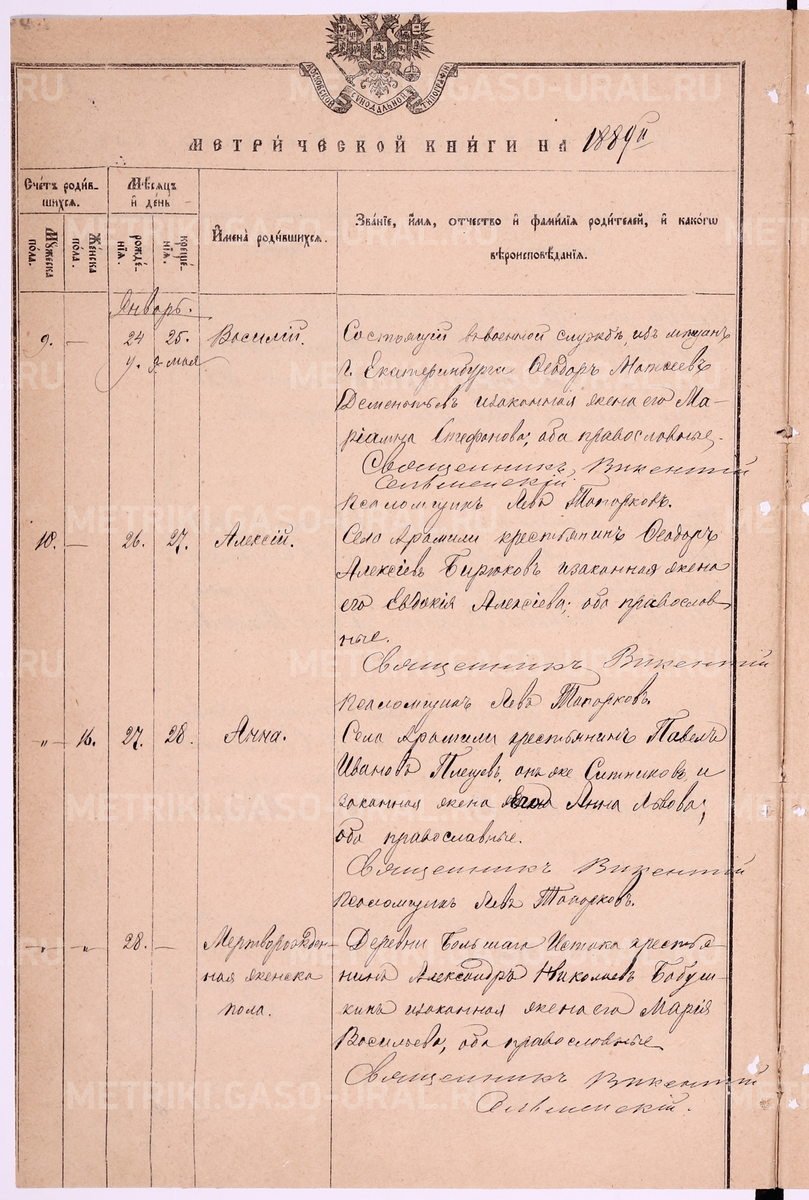 МОСКОВСКОЙ СѴНОДАЛЬНОЙ ТИПОГРАФІИ
МЕТРИ́ЧЕСКОЙ КНИ́ГИ НА 1889 г.
Сче́тъ роди́в-
шихся.
Мѣ́сяцъ
и҆ де́нь
И҆мена̀ роди́вшихся.
Зва́нїе, и҆́мя, о҆́тчество и҆ фами́лїя роди́телей, и҆ како́гѡ
вѣроисповѣ́данїя.
Мꙋ́жеска
по́ла.
Же́нска
по́ла.
рожде́-
нїя.
креще́-
нїя.
Январь.
9. — 24 25. Василій. Состоящій въ военной службѣ, изъ мѣщанъ
ч. 7 мая
г. Екатеринбурга Ѳеодоръ Матѳеевъ
Дементьевъ и законная жена его Ма-
ріамна Стефанова; оба православные.
Священникъ Викентій
Сельменскій.
Псаломщикъ Левъ Топорковъ.
10. — 26. 27. Алексій. Село Арамили крестьянинъ Ѳеодоръ
Алексіевъ Бирюковъ и законная жена
его Евдокія Алексіева; оба православ-
ные.
Священникъ Викентій
Псаломщикъ Левъ Топорковъ.
" — 16. 27. 28. Анна. Села Арамили крестьянинъ Павелъ
Ивановъ Плещевъ, онъ же Ситниковъ и
законная жена его Анна Львова;
оба православные.
Священникъ Викентій
Псаломщикъ Левъ Топорковъ.
" " 28. — Мертворожден- Деревни Большаго Истока крестья-
ная женска нинъ Александръ Николаевъ Бабуш-
пола. кинъ и законная жена его Марія
Васильева, оба православные
Священникъ Викентій
Сельменскій.
METRIKI.GASO-URAL.RU